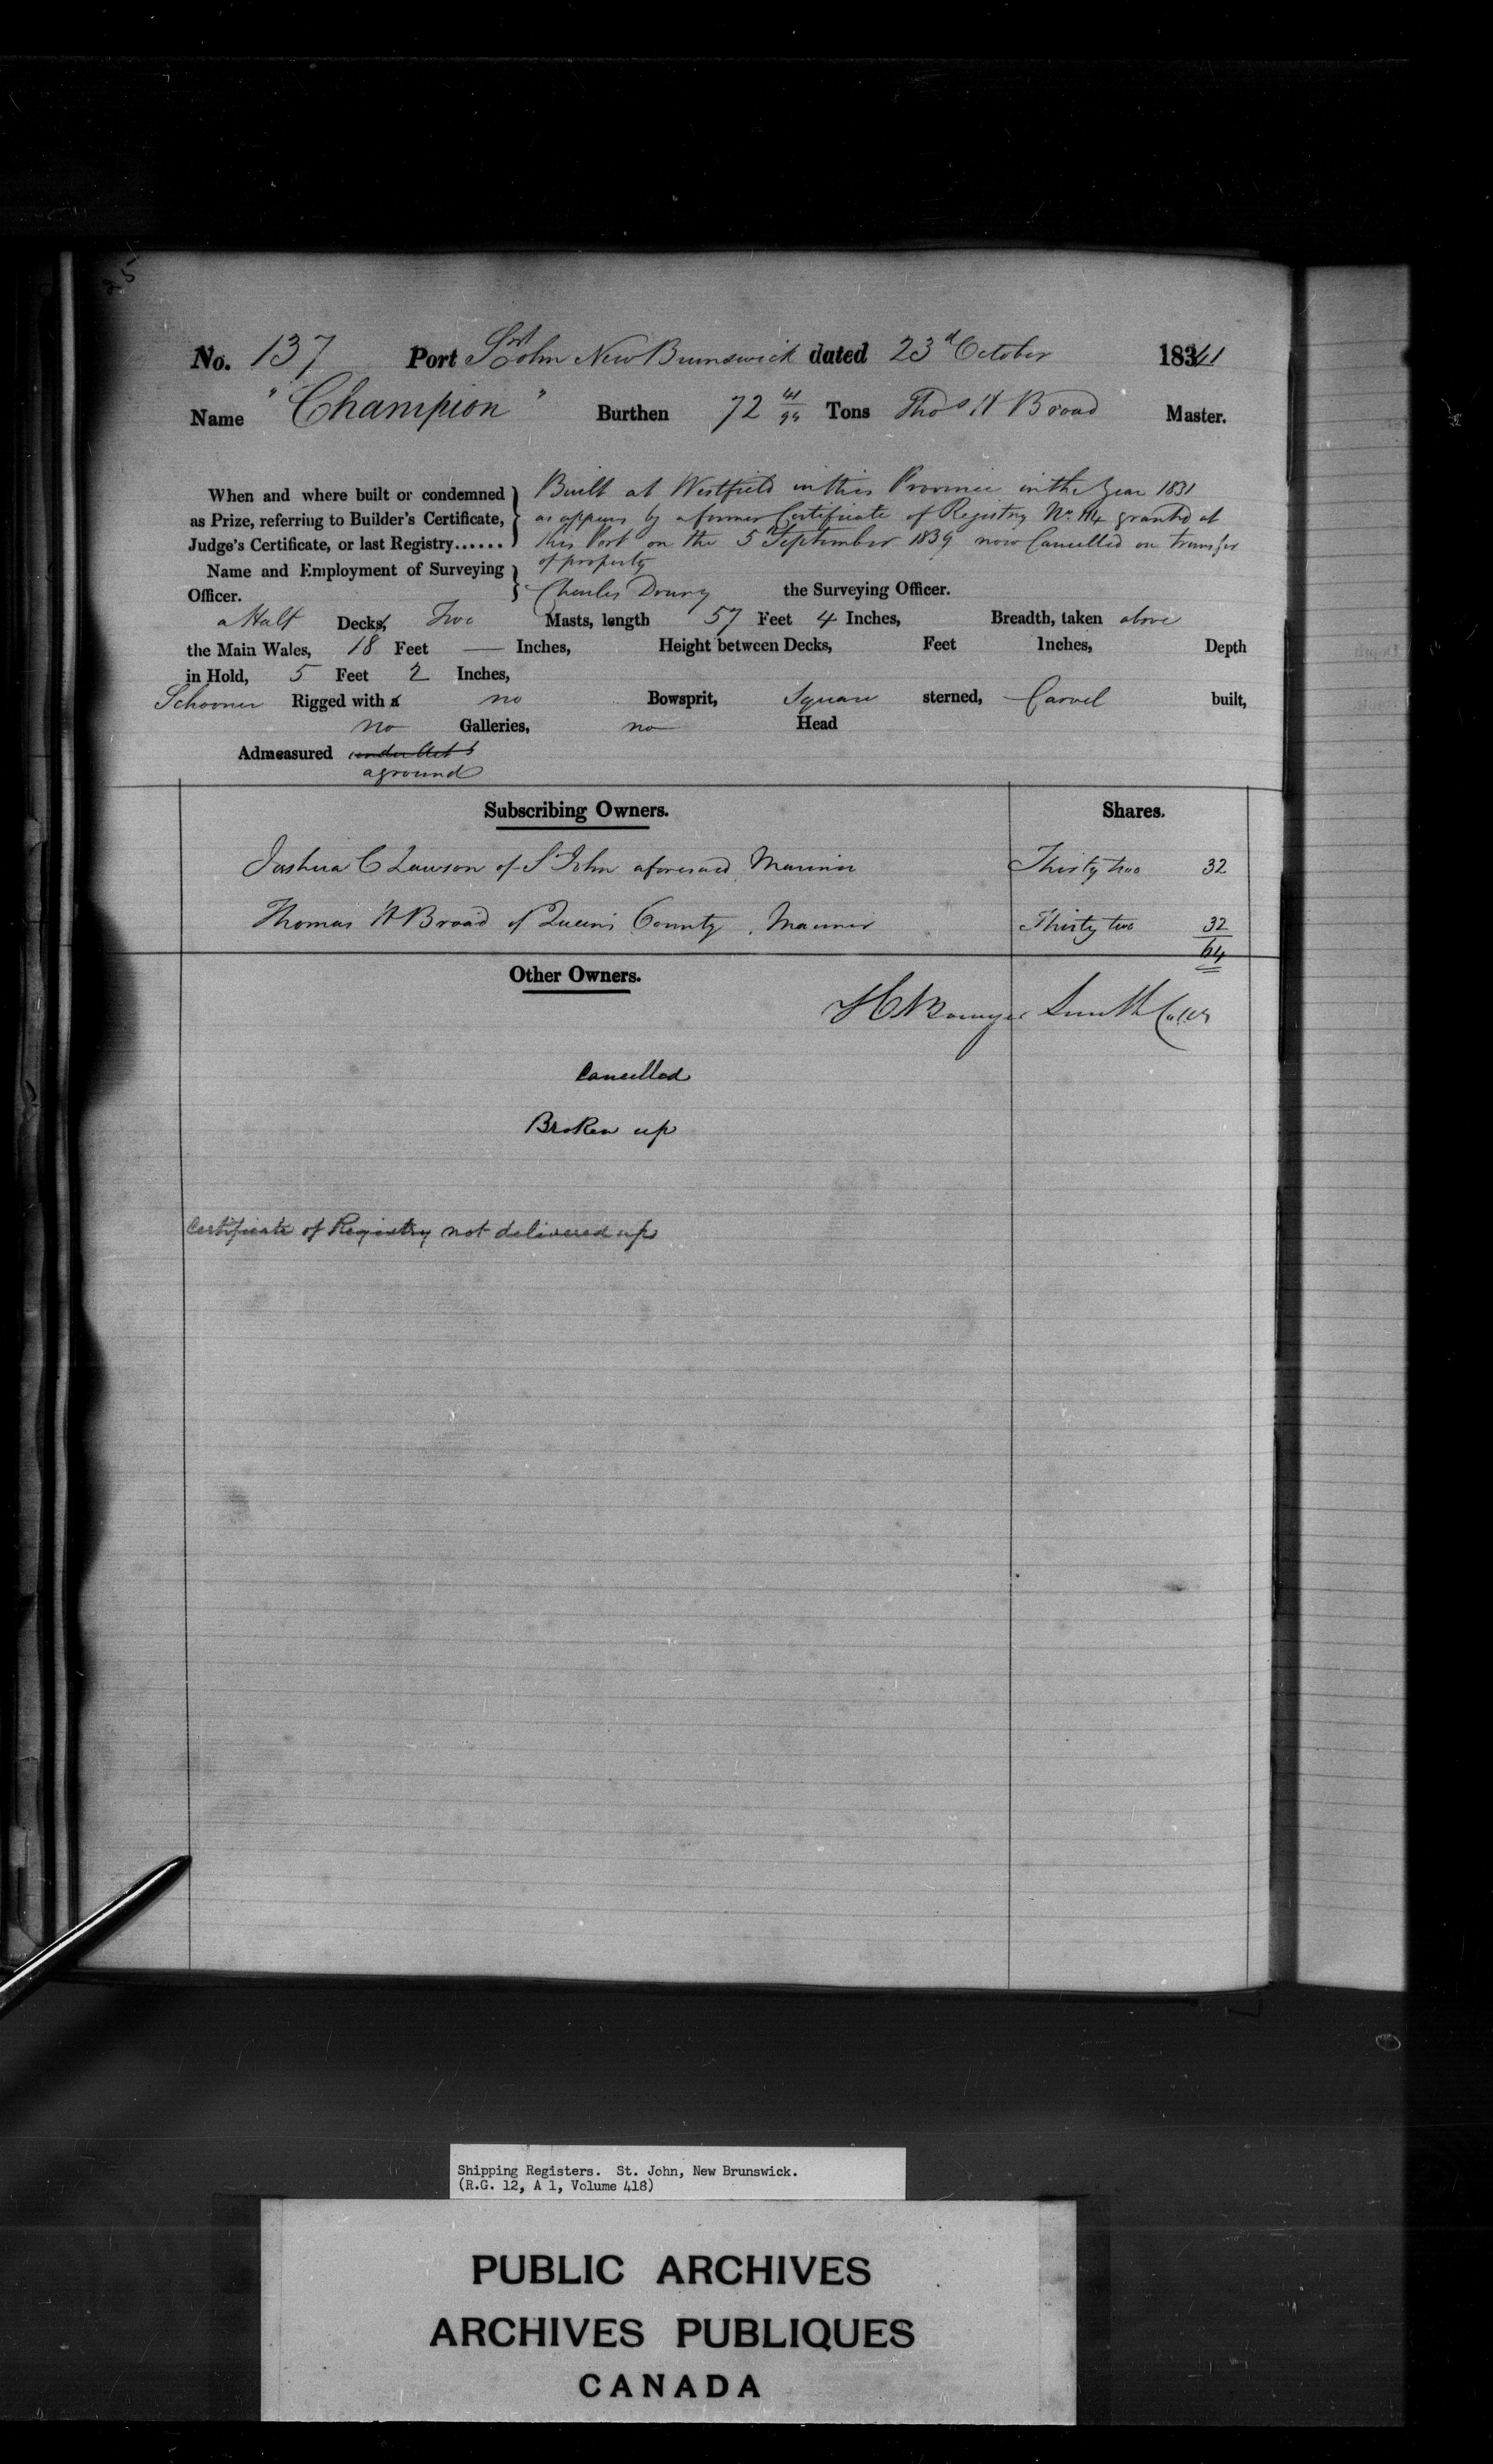 25
No. 137 Port St John New Brunswick dated 23d October 1841
Name "Champion" Burthen 72 41/94 Tons Thos H Broad Master.
When and where built or condemned Built at Westfield in this Province in the Year 1831
as Prize, referring to Builder's Certificate, as appears by a former Certificate of Registry No. 114 granted at
Judge's Certificate, or last Registry...... this Port on the 5th September 1839 now Cancelled on transfer
of property
Name and Employment of Surveying
Officer. Charles Drury the Surveying Officer.
a Half Decks, Two Masts, length 57 Feet 4 Inches, Breadth, taken above
the Main Wales, 18 Feet — Inches, Height between Decks, Feet Inches, Depth
in Hold, 5 Feet 2 Inches,
Schooner Rigged with a no Bowsprit, Square sterned, Carvel built,
no Galleries, no Head
Admeasured
aground
Subscribing Owners. Shares.
Joshua C Lawson of St John aforesaid Mariner Thirty two 32
Thomas H Broad of Queens County, Mariner Thirty two 32
64
Other Owners.
H Bowyer Smith Collr
Cancelled
Broken up
Certificate of Registry not delivered up
Shipping Registers. St. John, New Brunswick.
(R.G. 12, A 1, Volume 418)
PUBLIC ARCHIVES
ARCHIVES PUBLIQUES
CANADA